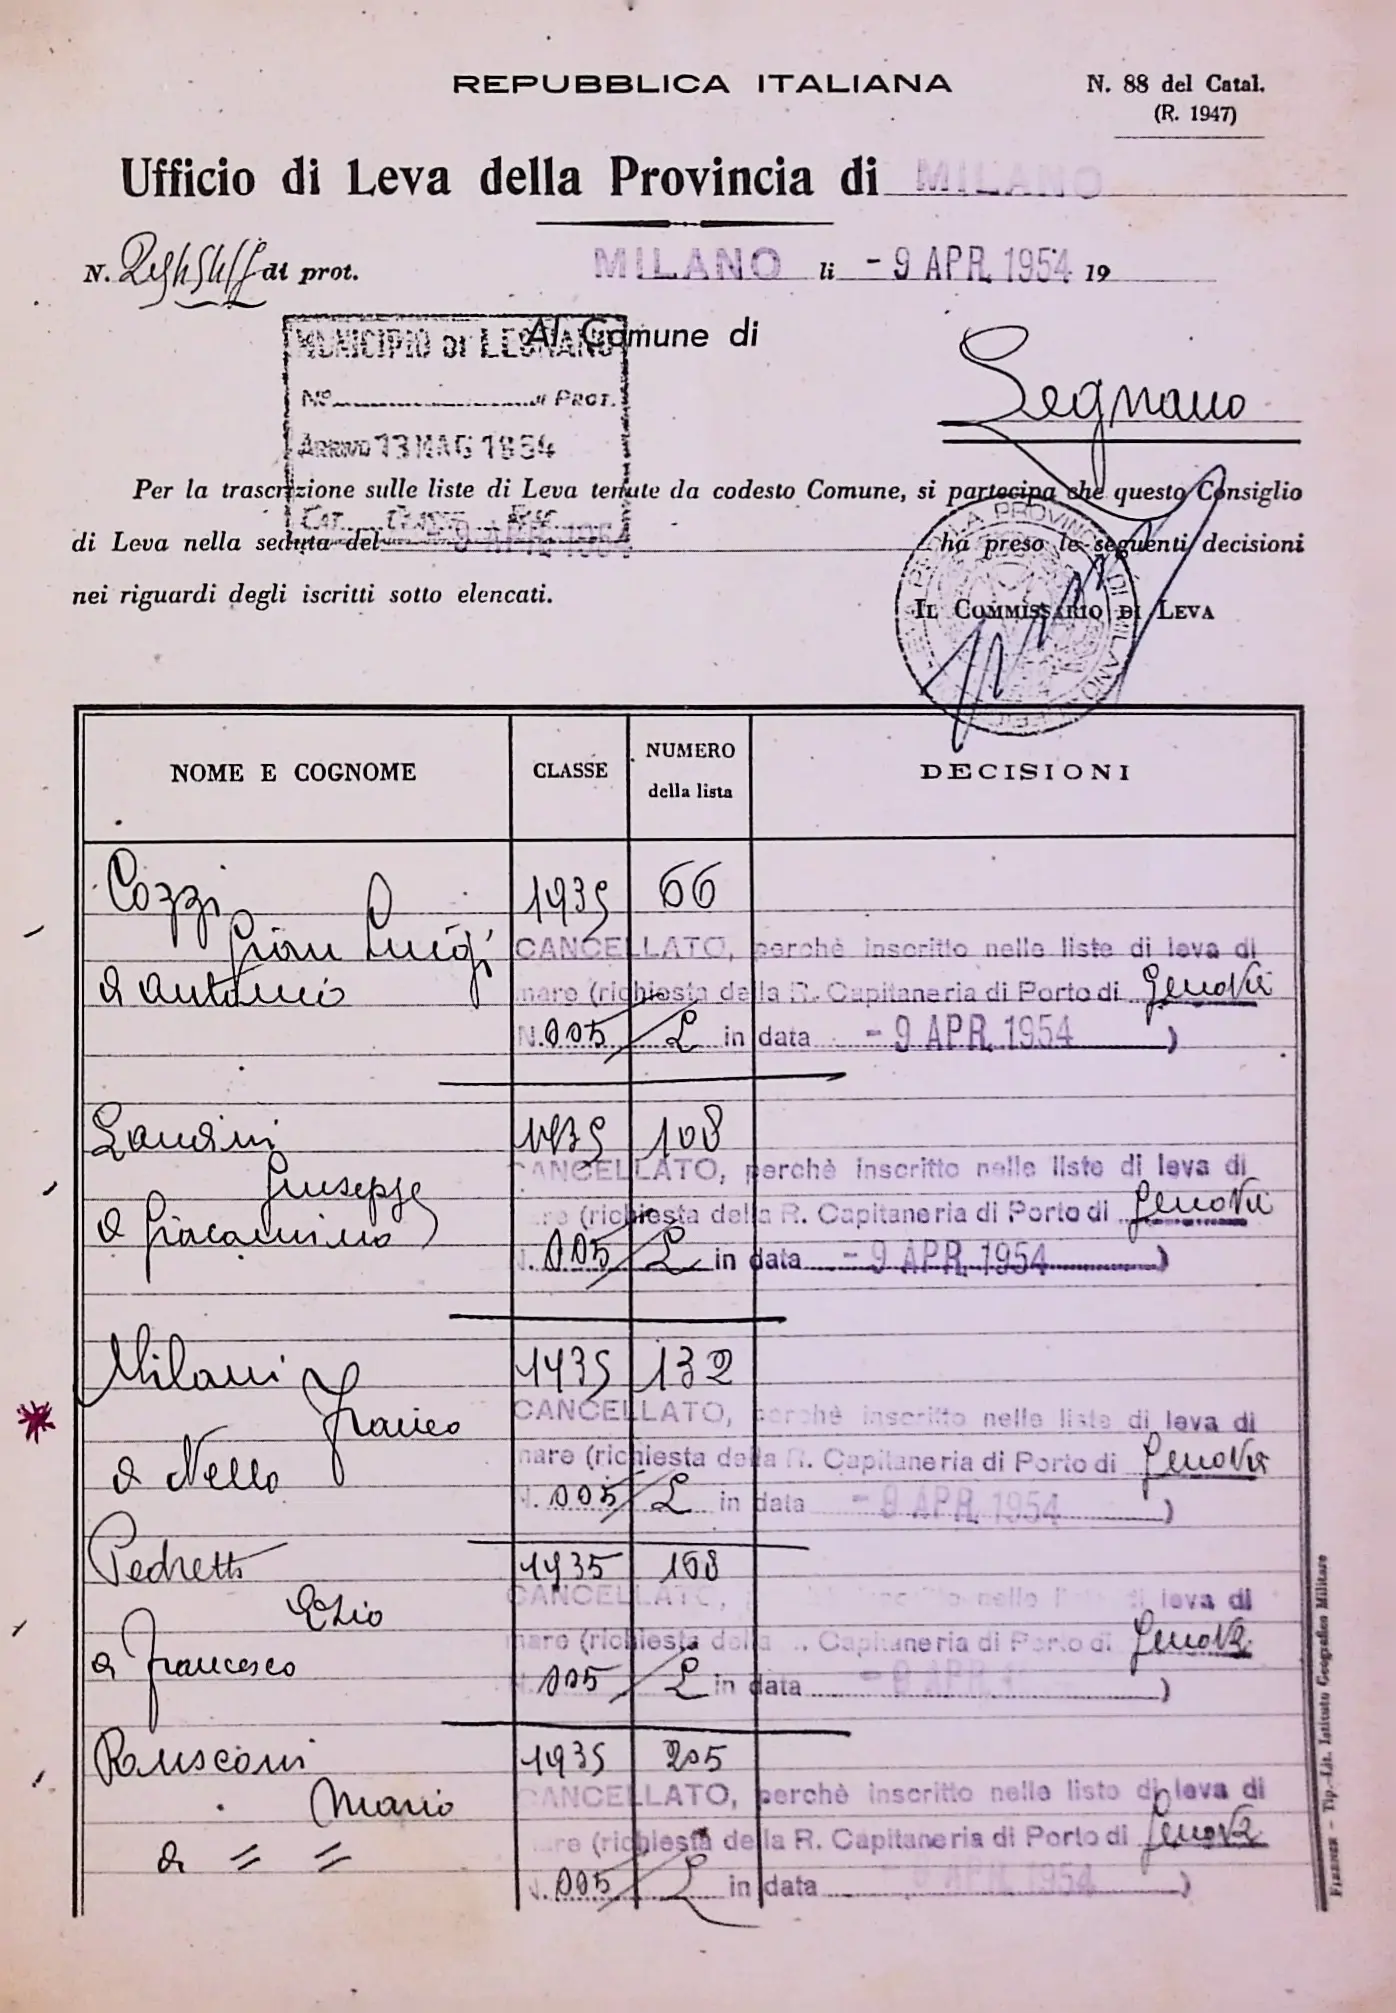 REPUBBLICA ITALIANA
N. 88 del Catal.
(R. 1947)
Ufficio di Leva della Provincia di MILANO
N. di prot.
MILANO li - 9 APR. 1954 19
Al Comune di
Legnano
MUNICIPIO DI LEGNANO
N° di PROT.
ARRIVO 13 MAG 1954
CAT. CLASSE FASC.
Per la trascrizione sulle liste di Leva tenute da codesto Comune, si partecipa che questo Consiglio
di Leva nella seduta del - 9 APR 1954 ha preso le seguenti decisioni
nei riguardi degli iscritti sotto elencati.
IL COMMISSARIO DI LEVA
NOME E COGNOME
CLASSE
NUMERO
della lista
DECISIONI
Cozzi 1935 66
Gian Luigi CANCELLATO, perchè inscritto nelle liste di leva di
di Antonio mare (richiesta della R. Capitaneria di Porto di Genova
N. 005/L in data - 9 APR. 1954 )
Landini 1935 108
Giuseppe CANCELLATO, perchè inscritto nelle liste di leva di
di Giacomino mare (richiesta della R. Capitaneria di Porto di Genova
N. 005/L in data - 9 APR. 1954 )
Milani 1935 132
Franco CANCELLATO, perchè inscritto nelle liste di leva di
di Nello mare (richiesta della R. Capitaneria di Porto di Genova
N. 005/L in data - 9 APR. 1954 )
Pedretti 1935 168
Ezio CANCELLATO, inscritto nelle liste di leva di
di Francesco mare (richiesta della R. Capitaneria di Porto di Genova
N. 005/L in data - 9 APR )
Rausconi 1935 205
Mario CANCELLATO, perchè inscritto nelle liste di leva di
di = = mare (richiesta della R. Capitaneria di Porto di Genova
N. 005/L in data 9 APR. 1954 )
FIRENZE - Tip.-Lit. Istituto Geografico Militare